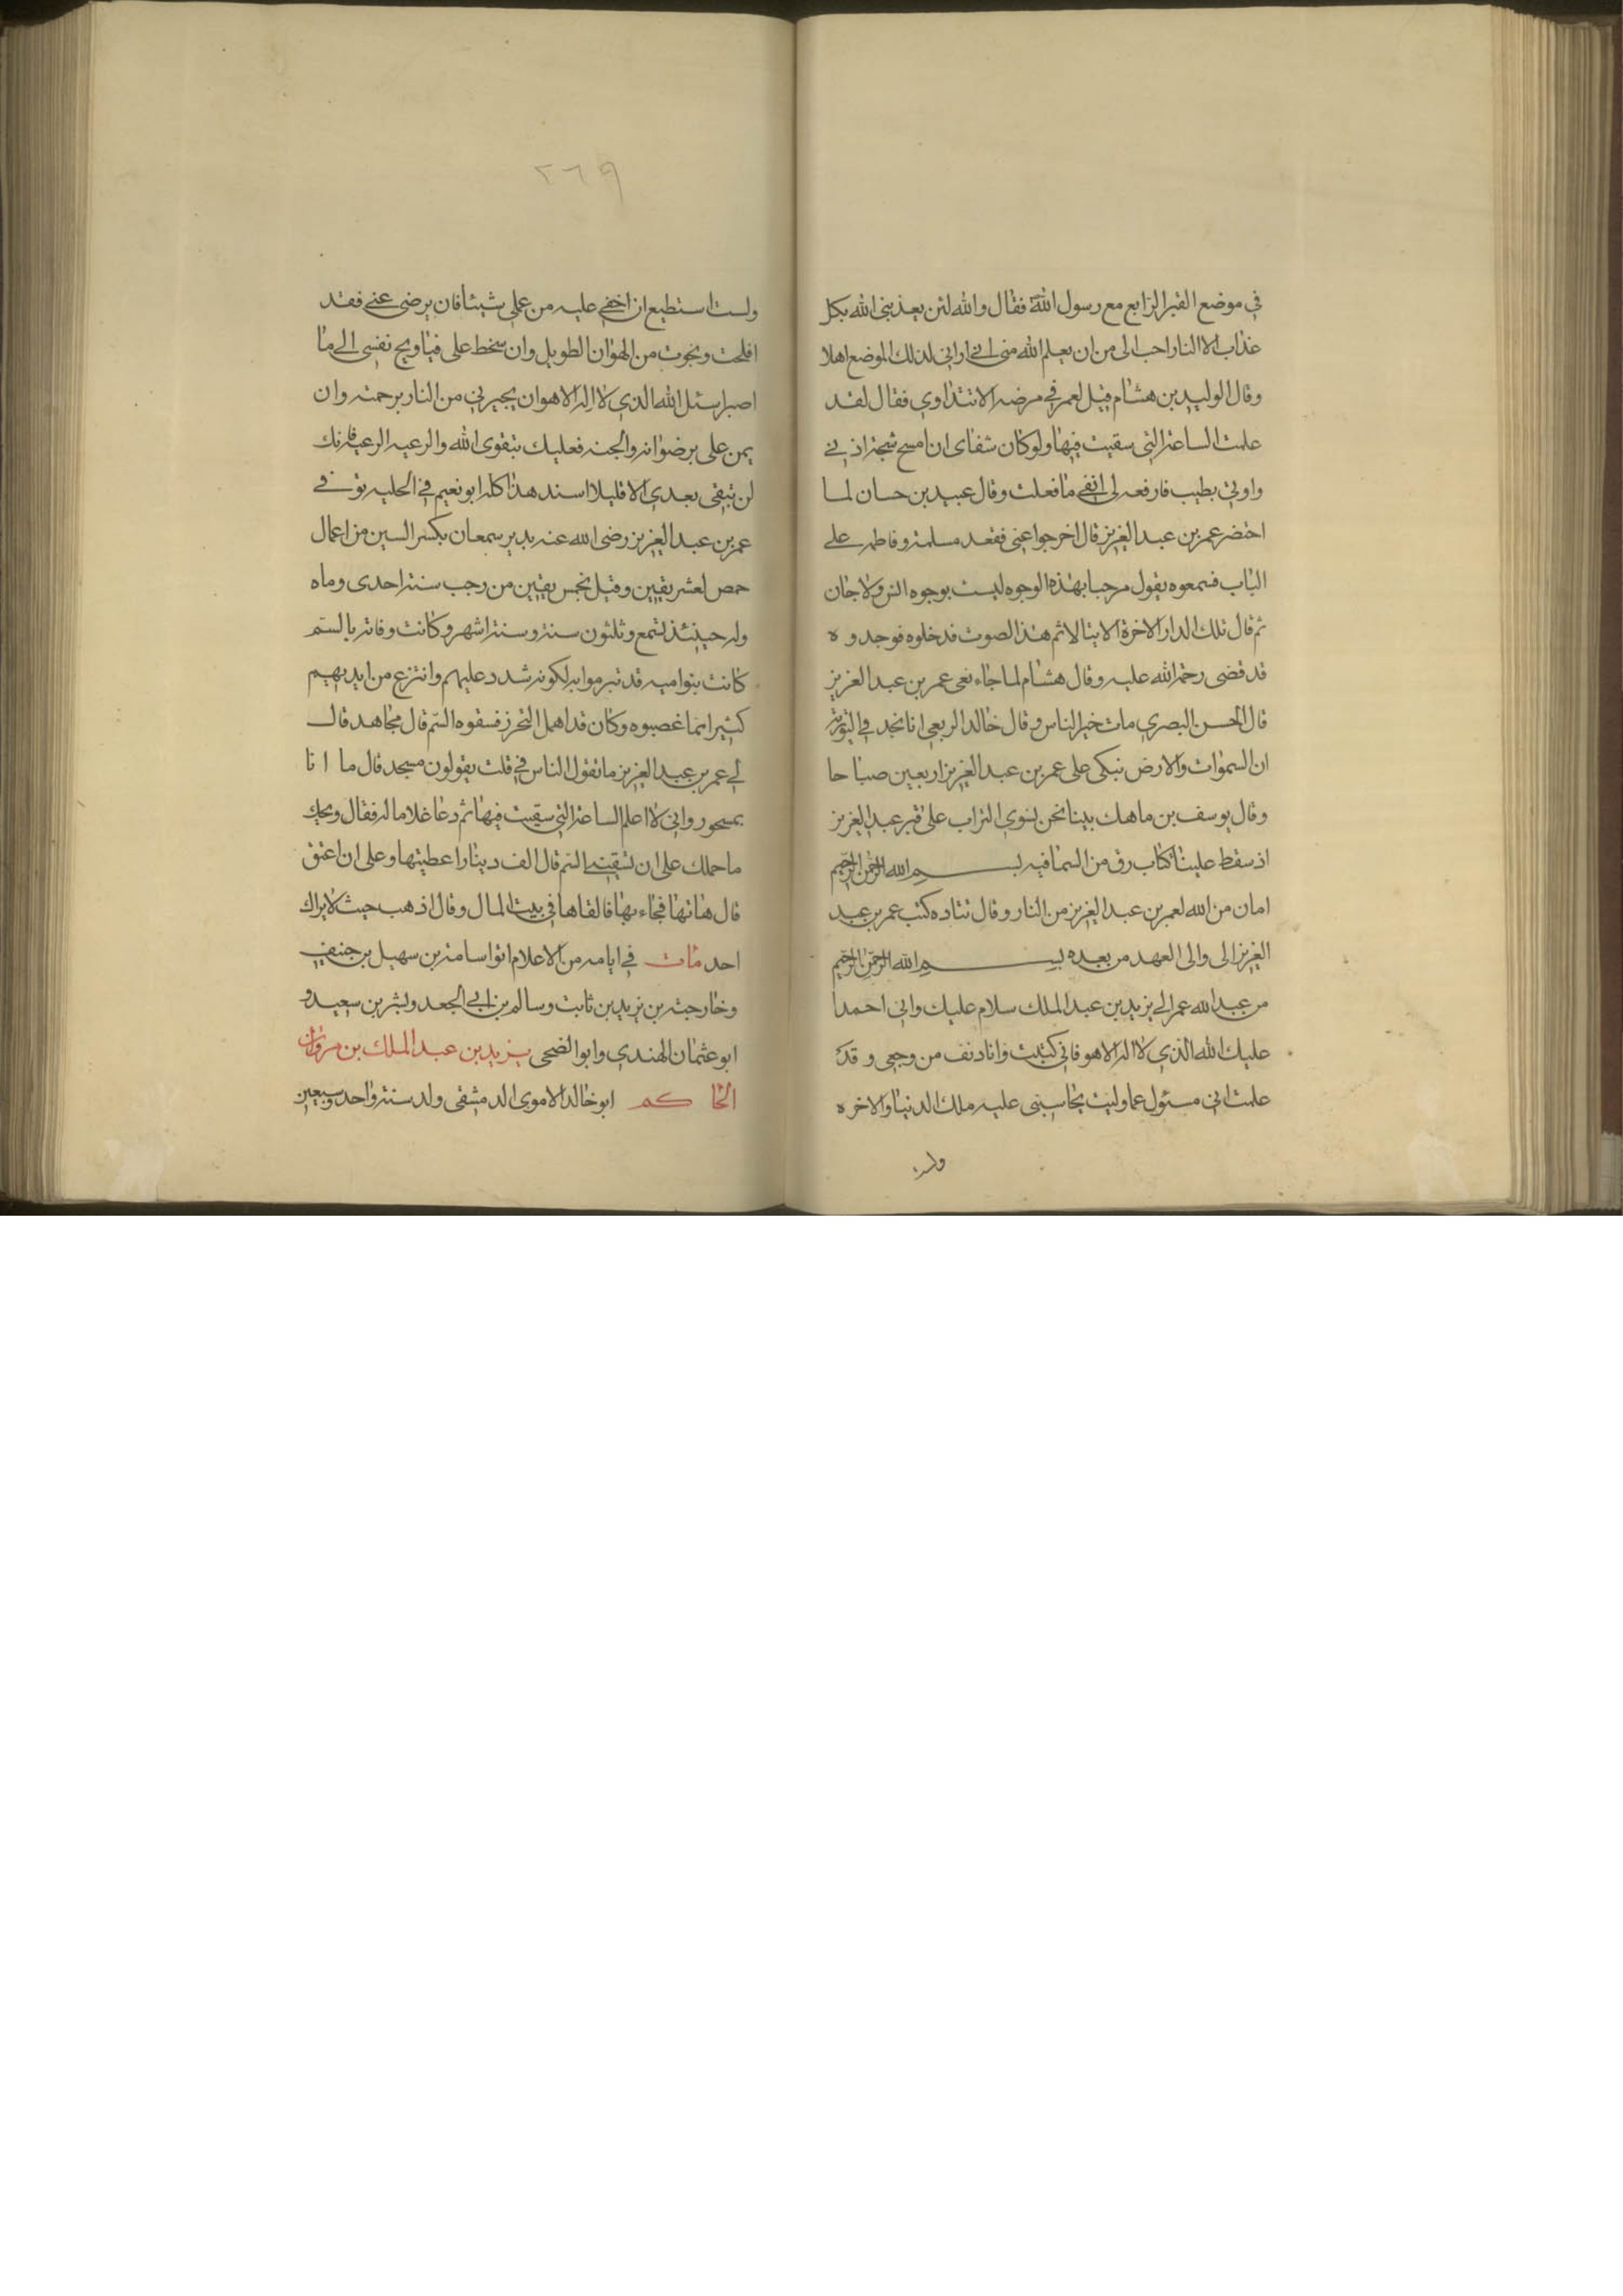 في موضع القبر الرابع مع رسول الله فقال والله لئن يعذبني الله بكل
عذاب الا النار احب الى من ان يعلم الله منى انى ارانى لذلك الموضع اهلا
وقال الوليد بن هشام قيل لعمر في مرضه الا تتداوي فقال لقد
علمت الساعة التي سقيت فيها ولو كان شفاى ان امسح شحمة اذني
واوتى بطيب فارفعه الى انفى ما فعلت وقال عبيد بن حسان لما
احتضر عمر بن عبد العزيز قال اخرجوا عنى فقعد مسلمة وفاطمه على
الباب فسمعوه يقول مرحبا بهذه الوجوه ليست بوجوه انس ولا جان
ثم قال تلك الدار الاخرة الاية ثم هذا الصوت فدخلوه فوجدوه
قد قضى رحمه الله عليه وقال هشام لما جاء نعى عمر بن عبد العزيز
قال الحسن البصري مات خير الناس وقال خالد الربعى انا نجد في التورية
ان السموات والارض تبكى على عمر بن عبد العزيز اربعين صباحا
وقال يوسف بن ماهك بينا نحن نسوي التراب على قبر عبد العزيز
اذ سقط علينا كتاب رق من السما فيه بسم الله الرحمن الرحيم
امان من الله لعمر بن عبد العزيز من النار وقال قتاده كتب عمر بن عبد
العزيز الى والى العهد من بعده بسم الله الرحمن الرحيم
من عبد الله عمر الى يزيد بن عبد الملك سلام عليك وانى احمدا
عليك الله الذي لا اله الا هو فانى كتبت وانا دنف من وجعى وقد
علمت انى مسئول عما وليت يحاسبنى عليه ملك الدنيا والاخره
ولست
٢٦٩
ولست استطيع ان اخفى عليه من عملى شيئا فان يرضى عنى فقد
افلحت ونجوت من الهوان الطويل وان سخط على فيا ويح نفسى الى ما
اصبر اسئل الله الذي لا اله الا هو ان يجيرنى من النار برحمته وان
يمن على برضوانه والجنه فعليك بتقوى الله والرعيه الرعيه فانك
لن تبقى بعدي الا قليلا اسند هذا كله ابو نعيم في الحليه توفى
عمر بن عبد العزيز رضى الله عنه بدير سمعان بكسر السين من اعمال
حمص لعشر بقين وقيل لخمس بقين من رجب سنة احدى وماه
وله حينئذ تسع وثلثون سنة وستة اشهر وكانت وفاته بالسم
كانت بنواميه قد تبرموا به لكونه شدد عليهم وانتزع من ايديهم
كثيرا مما غصبوه وكان قد اهمل التحرز فسقوه السم قال مجاهد قال
لى عمر بن عبد العزيز ما تقول الناس في قلت يقولون مسحور قال ما انا
بمسحور وانى لا اعلم الساعة التي سقيت فيها ثم دعا غلاما له فقال ويحك
ما حملك على ان تسقينى السم قال الف دينار اعطيتها وعلى ان اعتق
قال هاتها فجاء بها فالقاها في بيت المال وقال اذهب حيث لا يراك
احد مات في ايامه من الاعلام ابو اسامة بن سهيل بن حنيف
وخارجة بن يزيد بن ثابت وسالم بن ابى الجعد وبشر بن سعيد و
ابو عثمان الهندي وابو الضحى يزيد بن عبد الملك بن مروان
الحاكم ابو خالد الاموى الدمشقى ولد سنة واحد وسبعين